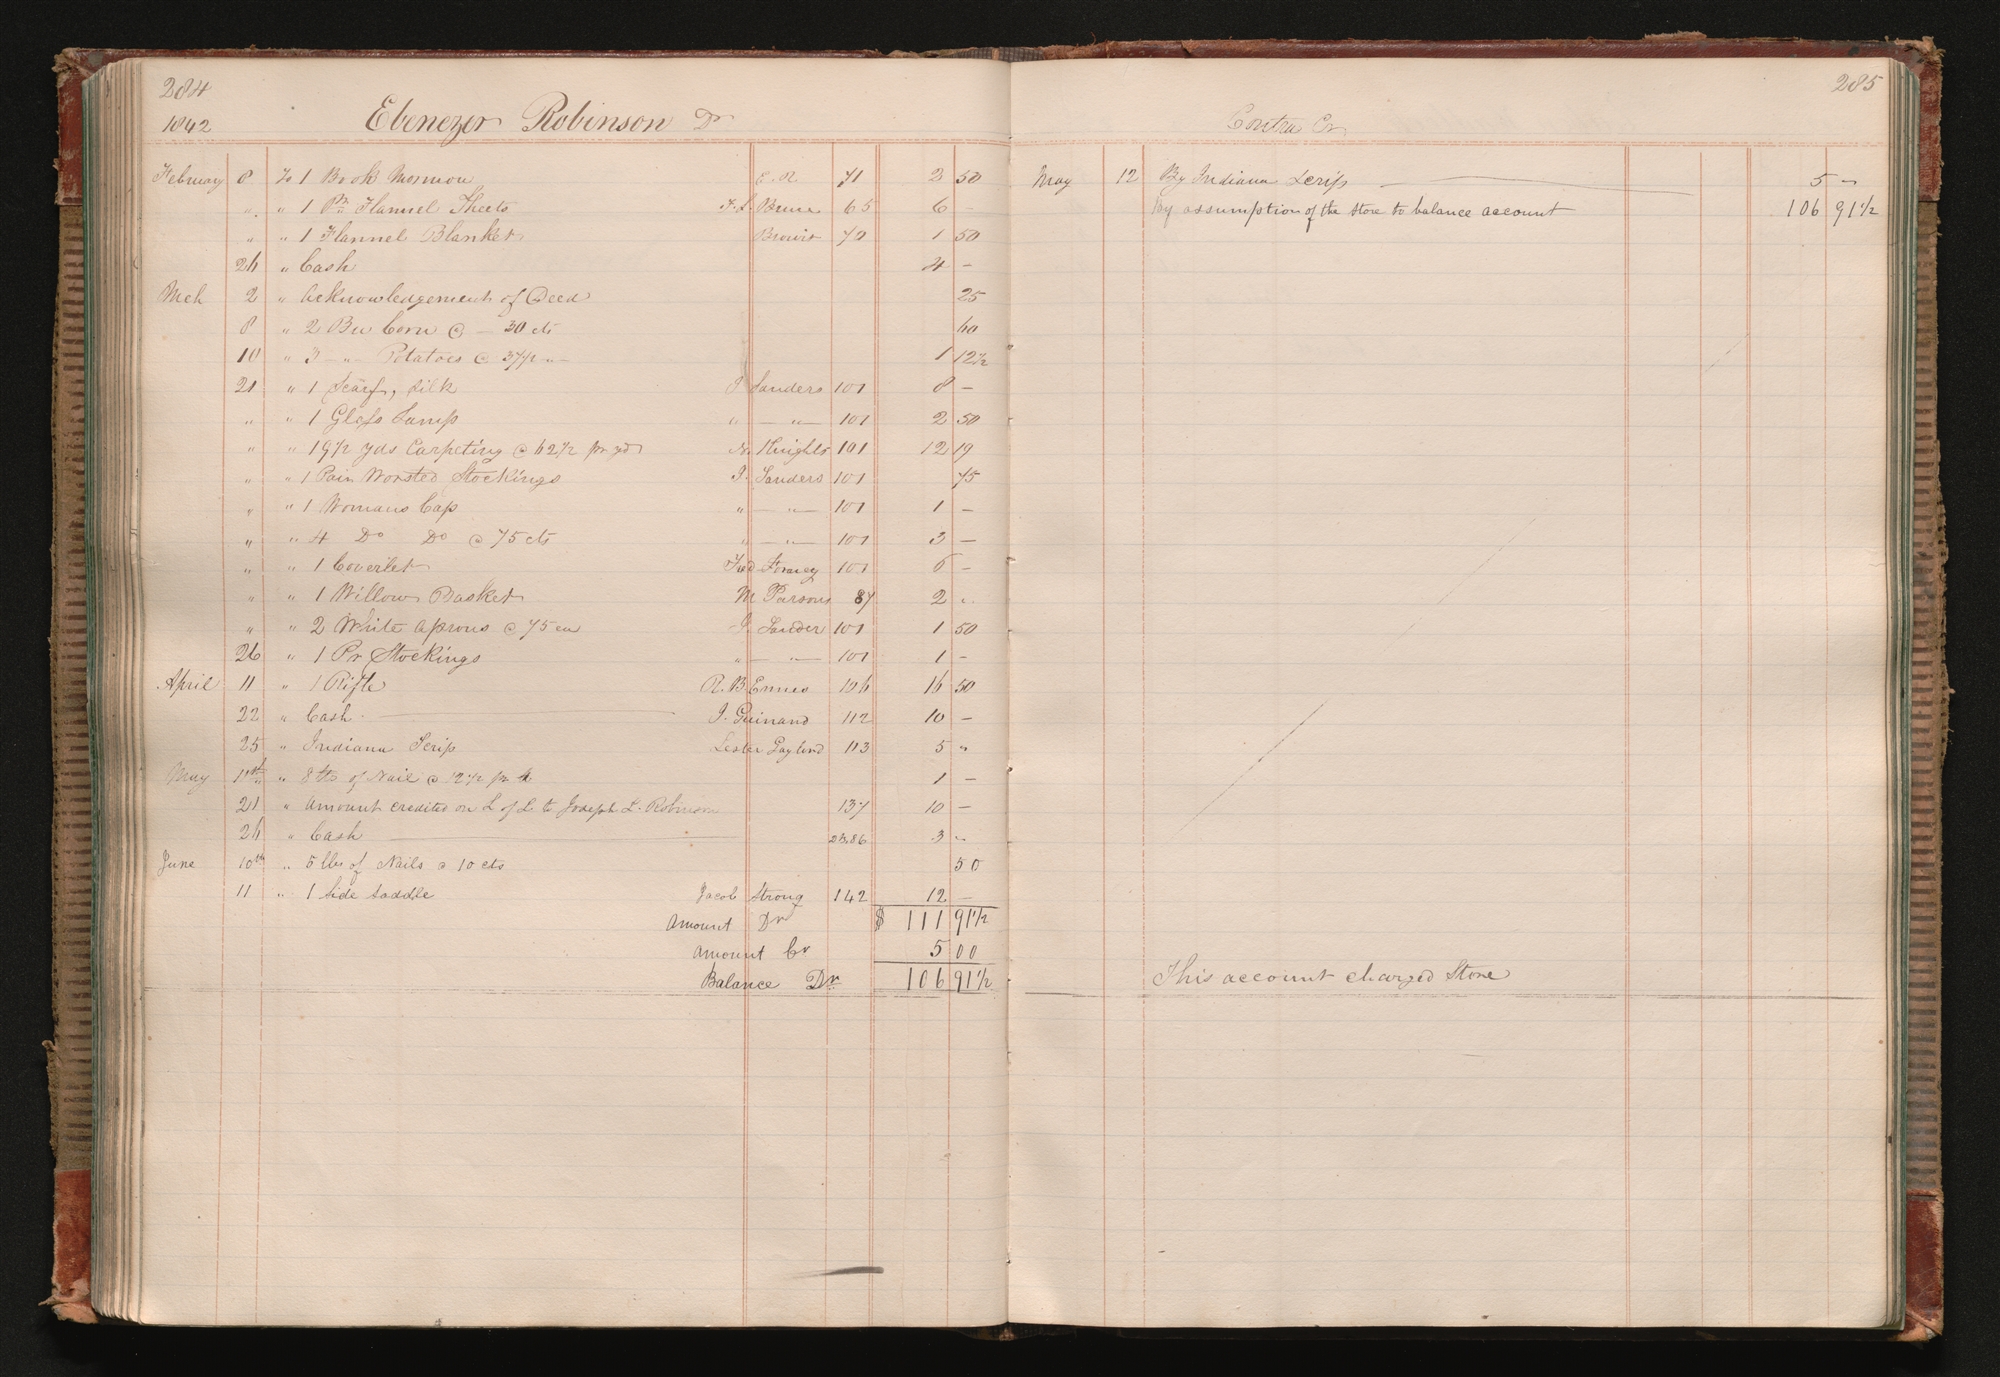 284
1842 Ebenezer Robinson Dr
February 8 To 1 Book Mormon E. R 71 2 50
" " 1 Pr Flannel Sheets 65 6 -
" " 1 Flannel Blanket 70 1 50
26 " Cash 4 -
Mch 2 " Acknowledgement of Deed 25
8 " 2 Bu Corn @ - 30 cts 60
10 " 3 - " - Potatoes @ 37 1/2 - " - 1 12 1/2
21 " 1 Scarf, Silk J. Sanders 101 8 -
" " 1 Glass Lamp " - " - 101 2 50
" " 19 1/2 yds Carpeting @ 62 1/2 pr yd N. Knights 101 12 19
" " 1 Pair Worsted Stockings J. Sanders 101 75
" " 1 Womans Cap " - " - 101 1 -
" " 4 Do Do @ 75 cts " - " - 101 3 -
" " 1 Coverlet Forney 101 6 -
" " 1 Willow Basket M Parsons 87 2 "
" " 2 White Aprons @ 75 ea J. Sander 101 1 50
26 " 1 Pr Stockings " - " - 101 1 -
April 11 " 1 Rifle R. B. Ennes 106 16 50
22 " Cash J. Guinand 112 10 -
25 " Indiana Scrip Lester Gaylord 113 5 "
May 11th " 8 lbs of Nail @ 12 1/2 pr lb 1 -
21 " Amount credited on L of L to Joseph L. Robinson 137 10 -
26 " Cash 3 -
June 10th " 5 lbs of Nails @ 10 cts 50
11 " 1 Side Saddle Jacob Strong 142 12 -
Amount Dr $ 111 91 1/2
Amount Cr 5 00
Balance Dr. 106 91 1/2
285
Contra Cr
May 12 By Indiana Scrip 5 -
By assumption of the Store to balance account 106 91 1/2
This account charged Store